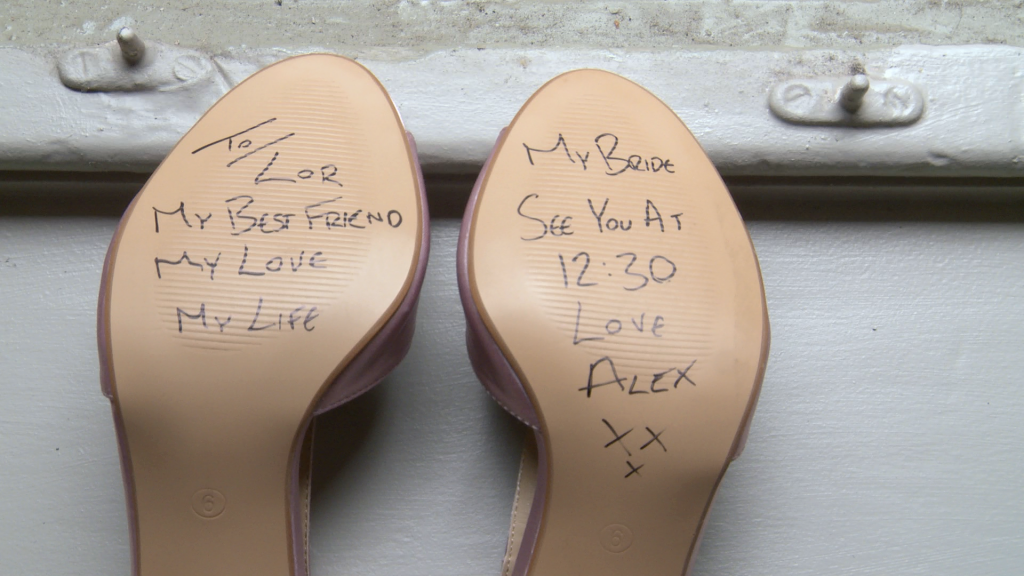 To/
Lor
My Best Friend
My Love
My Life
6
My Bride
See You At
12:30
Love
Alex
XX
x
6